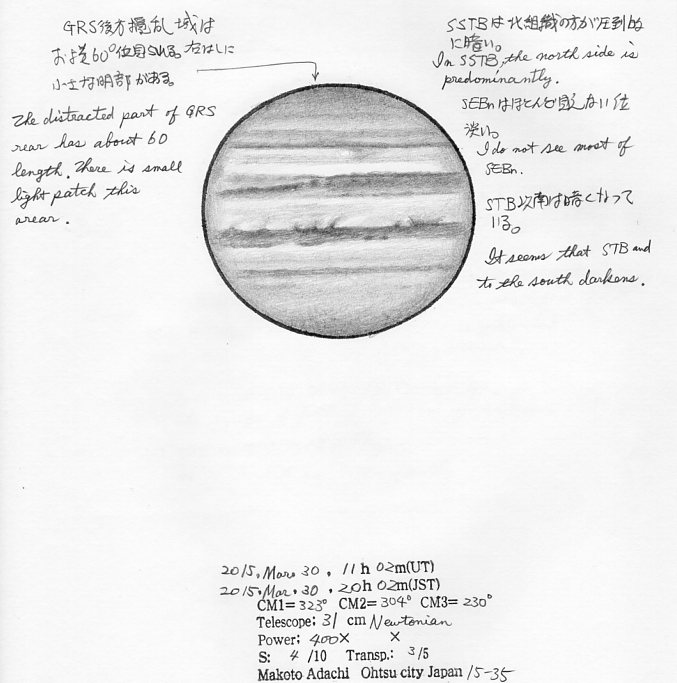 GRS後方擾乱域は
およそ60°位見られる。はしに
小さな明部がある。
The distracted part of GRS
rear has about 60
length. There is small
light patch this
arear.
SSTBは北組織の方が圧到的
に暗い。
In SSTB, the north side is
predominantly.
SEBnはほとんど見えない位
淡い。
I do not see most of
SEBn.
STB以南は暗くなって
いる。
It seems that STB and
to the south darkens.
2015. Mar. 30 . 11h 02m(UT)
2015. Mar. 30 . 20h 02m(JST)
CM1= 323° CM2= 304° CM3= 230°
Telescope: 31 cm Newtonian
Power: 400× ×
S: 4 /10 Transp.: 3/5
Makoto Adachi Ohtsu city Japan 15-35